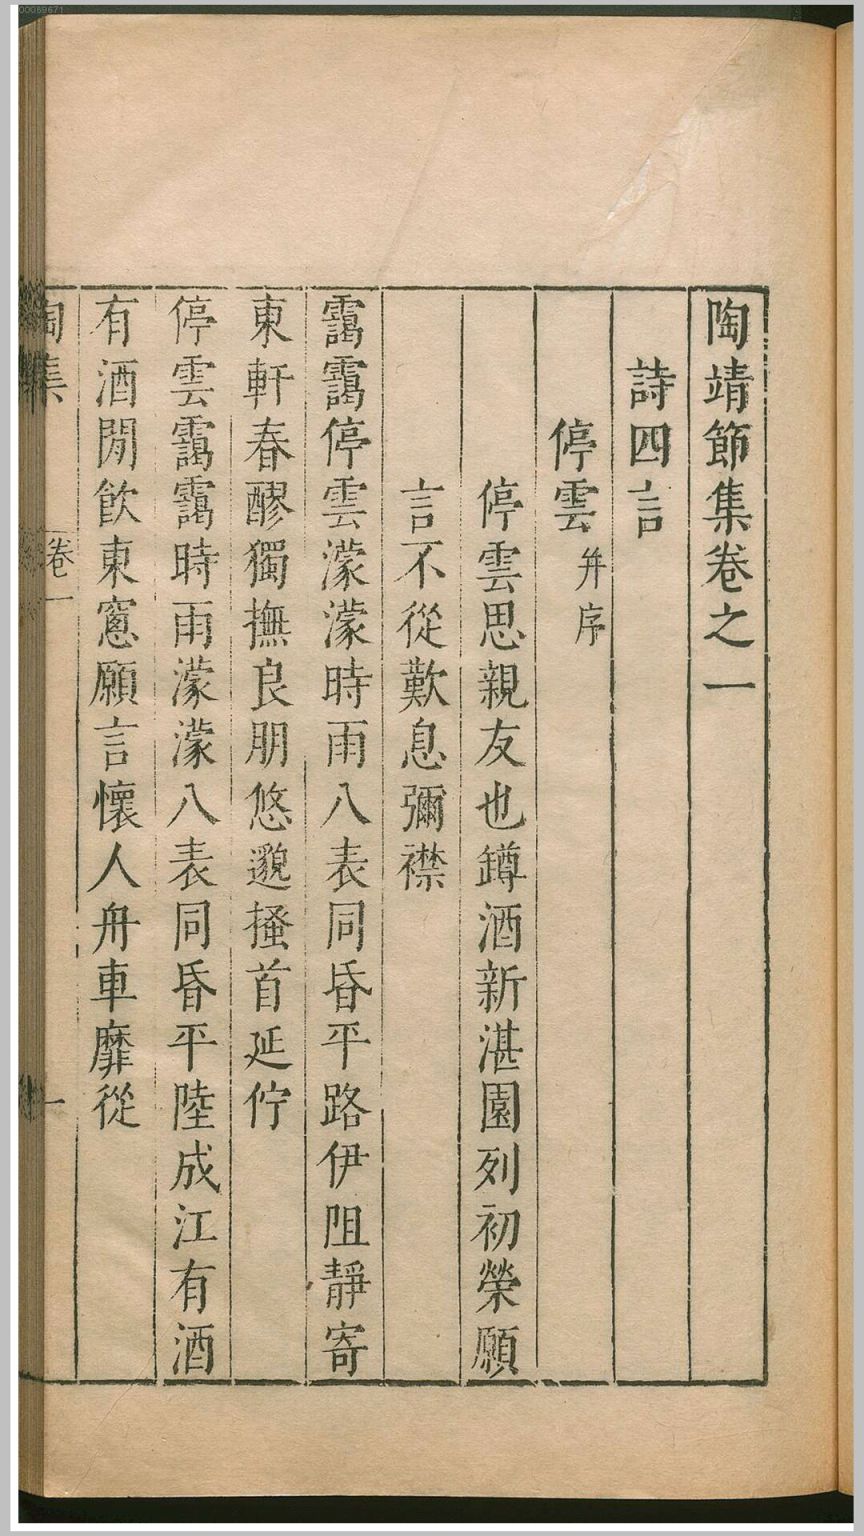 陶靖節集卷之一
詩四言
停雲 幷序
停雲思親友也罇酒新湛園列初榮願
言不從歎息彌襟
靄靄停雲濛濛時雨八表同昏平路伊阻靜寄
東軒春醪獨撫良朋悠邈搔首延佇
停雲靄靄時雨濛濛八表同昏平陸成江有酒
有酒閒飲東窻願言懷人舟車靡從
陶集 卷一 一
00069671